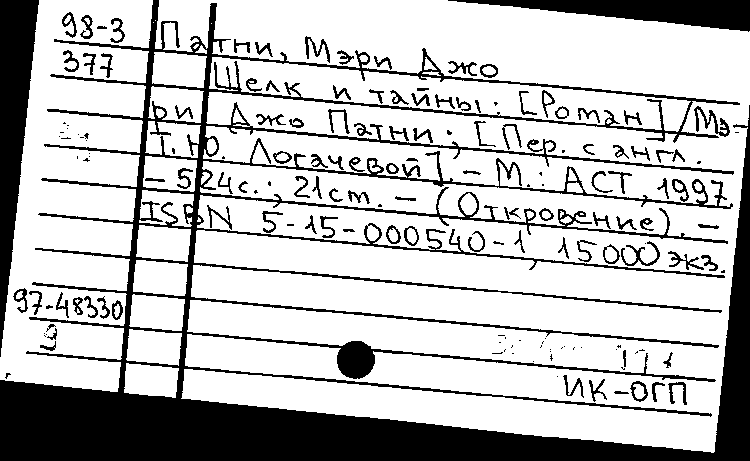 98-3 Патни, Мэри Джо
377 Шелк и тайны: [Роман] / Мэ-
ри Джо Патни; [Пер. с англ.
Т. Ю. Логачевой]. - М.: АСТ, 1997.
- 524с.; 21см. - (Откровение). -
ISBN 5-15-000540-1, 15000 экз.
97-48330
9
ИК-ОГП